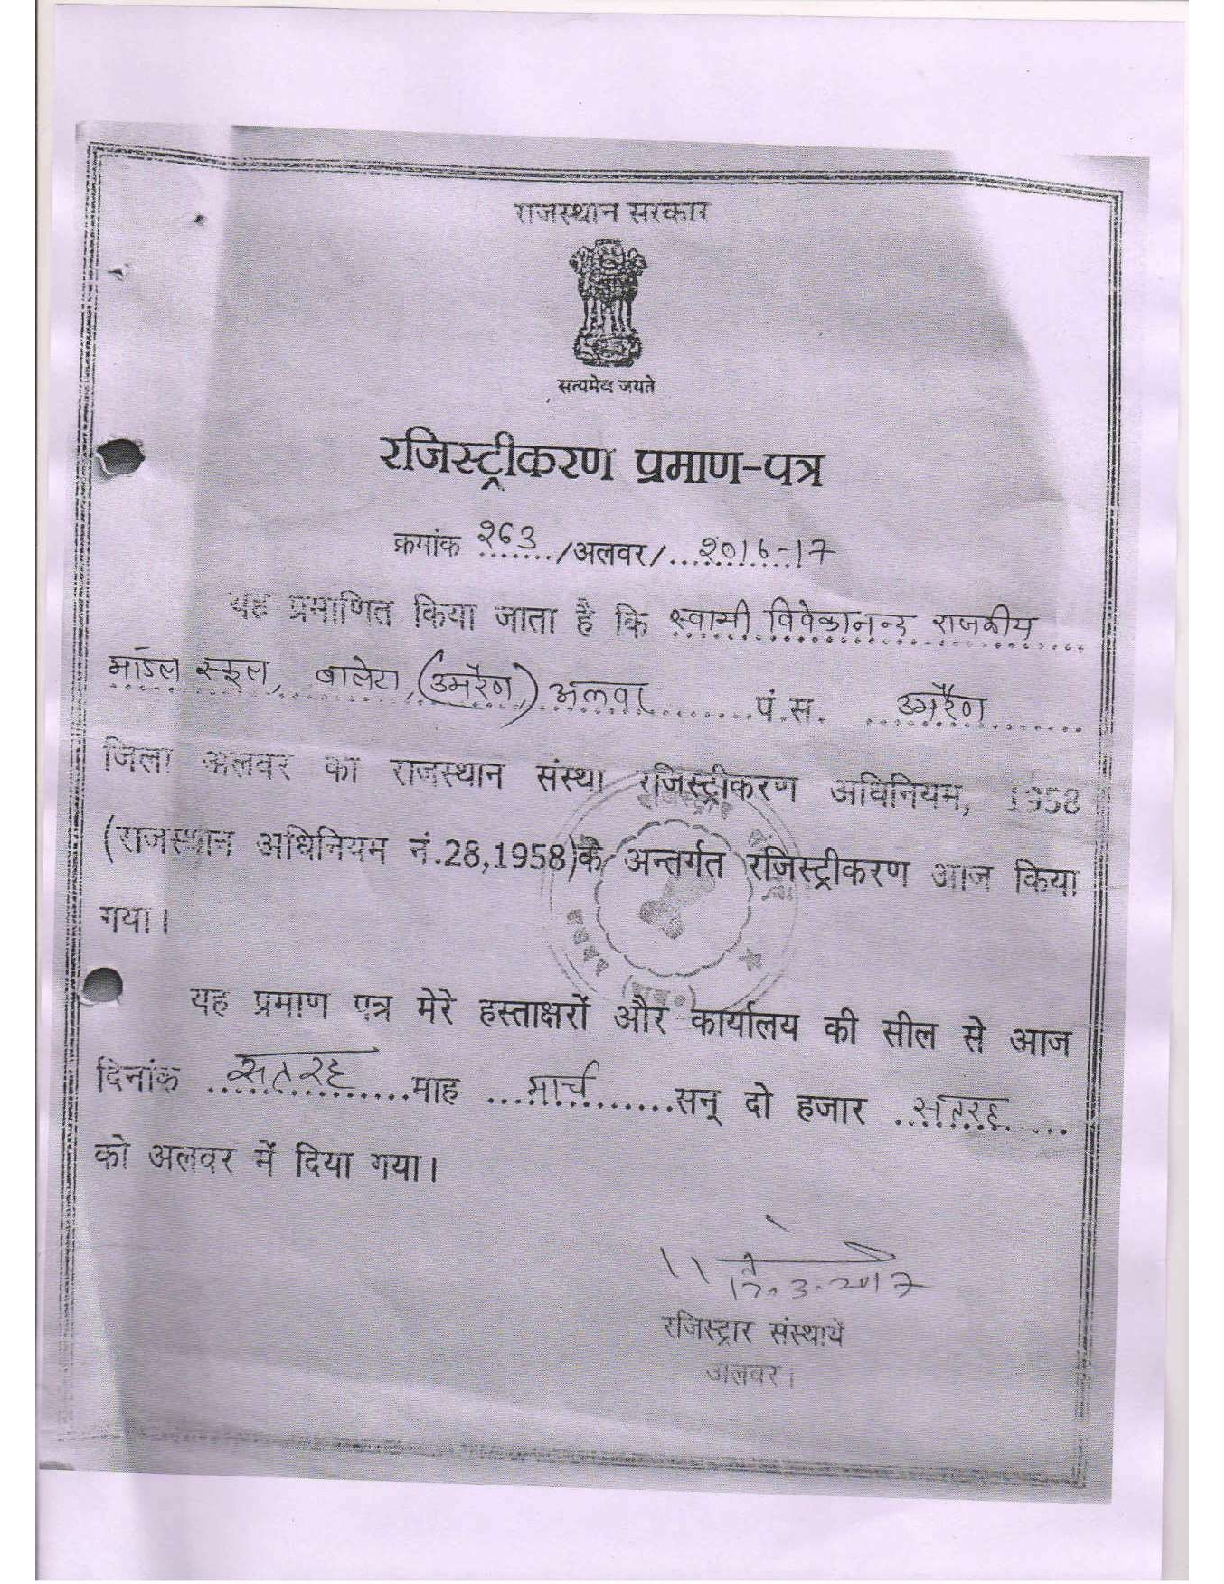 राजस्थान सरकार
सत्यमेव जयते
रजिस्ट्रीकरण प्रमाण-पत्र
क्रमांक २६३ /अलवर/ २०१६-१७
यह प्रमाणित किया जाता है कि स्वामी विवेकानन्द राजकीय
मॉडल स्कूल, बालेटा, (उमरैण) अलवर पं.स. उमरैण
जिला अलवर का राजस्थान संस्था रजिस्ट्रीकरण अधिनियम, 1958
(राजस्थान अधिनियम नं.28,1958)के अन्तर्गत रजिस्ट्रीकरण आज किया
गया।
यह प्रमाण पत्र मेरे हस्ताक्षरों और कार्यालय की सील से आज
दिनांक सतरह माह मार्च सन् दो हजार सतरह
को अलवर में दिया गया।
17.3.2017
रजिस्ट्रार संस्थायें
अलवर।